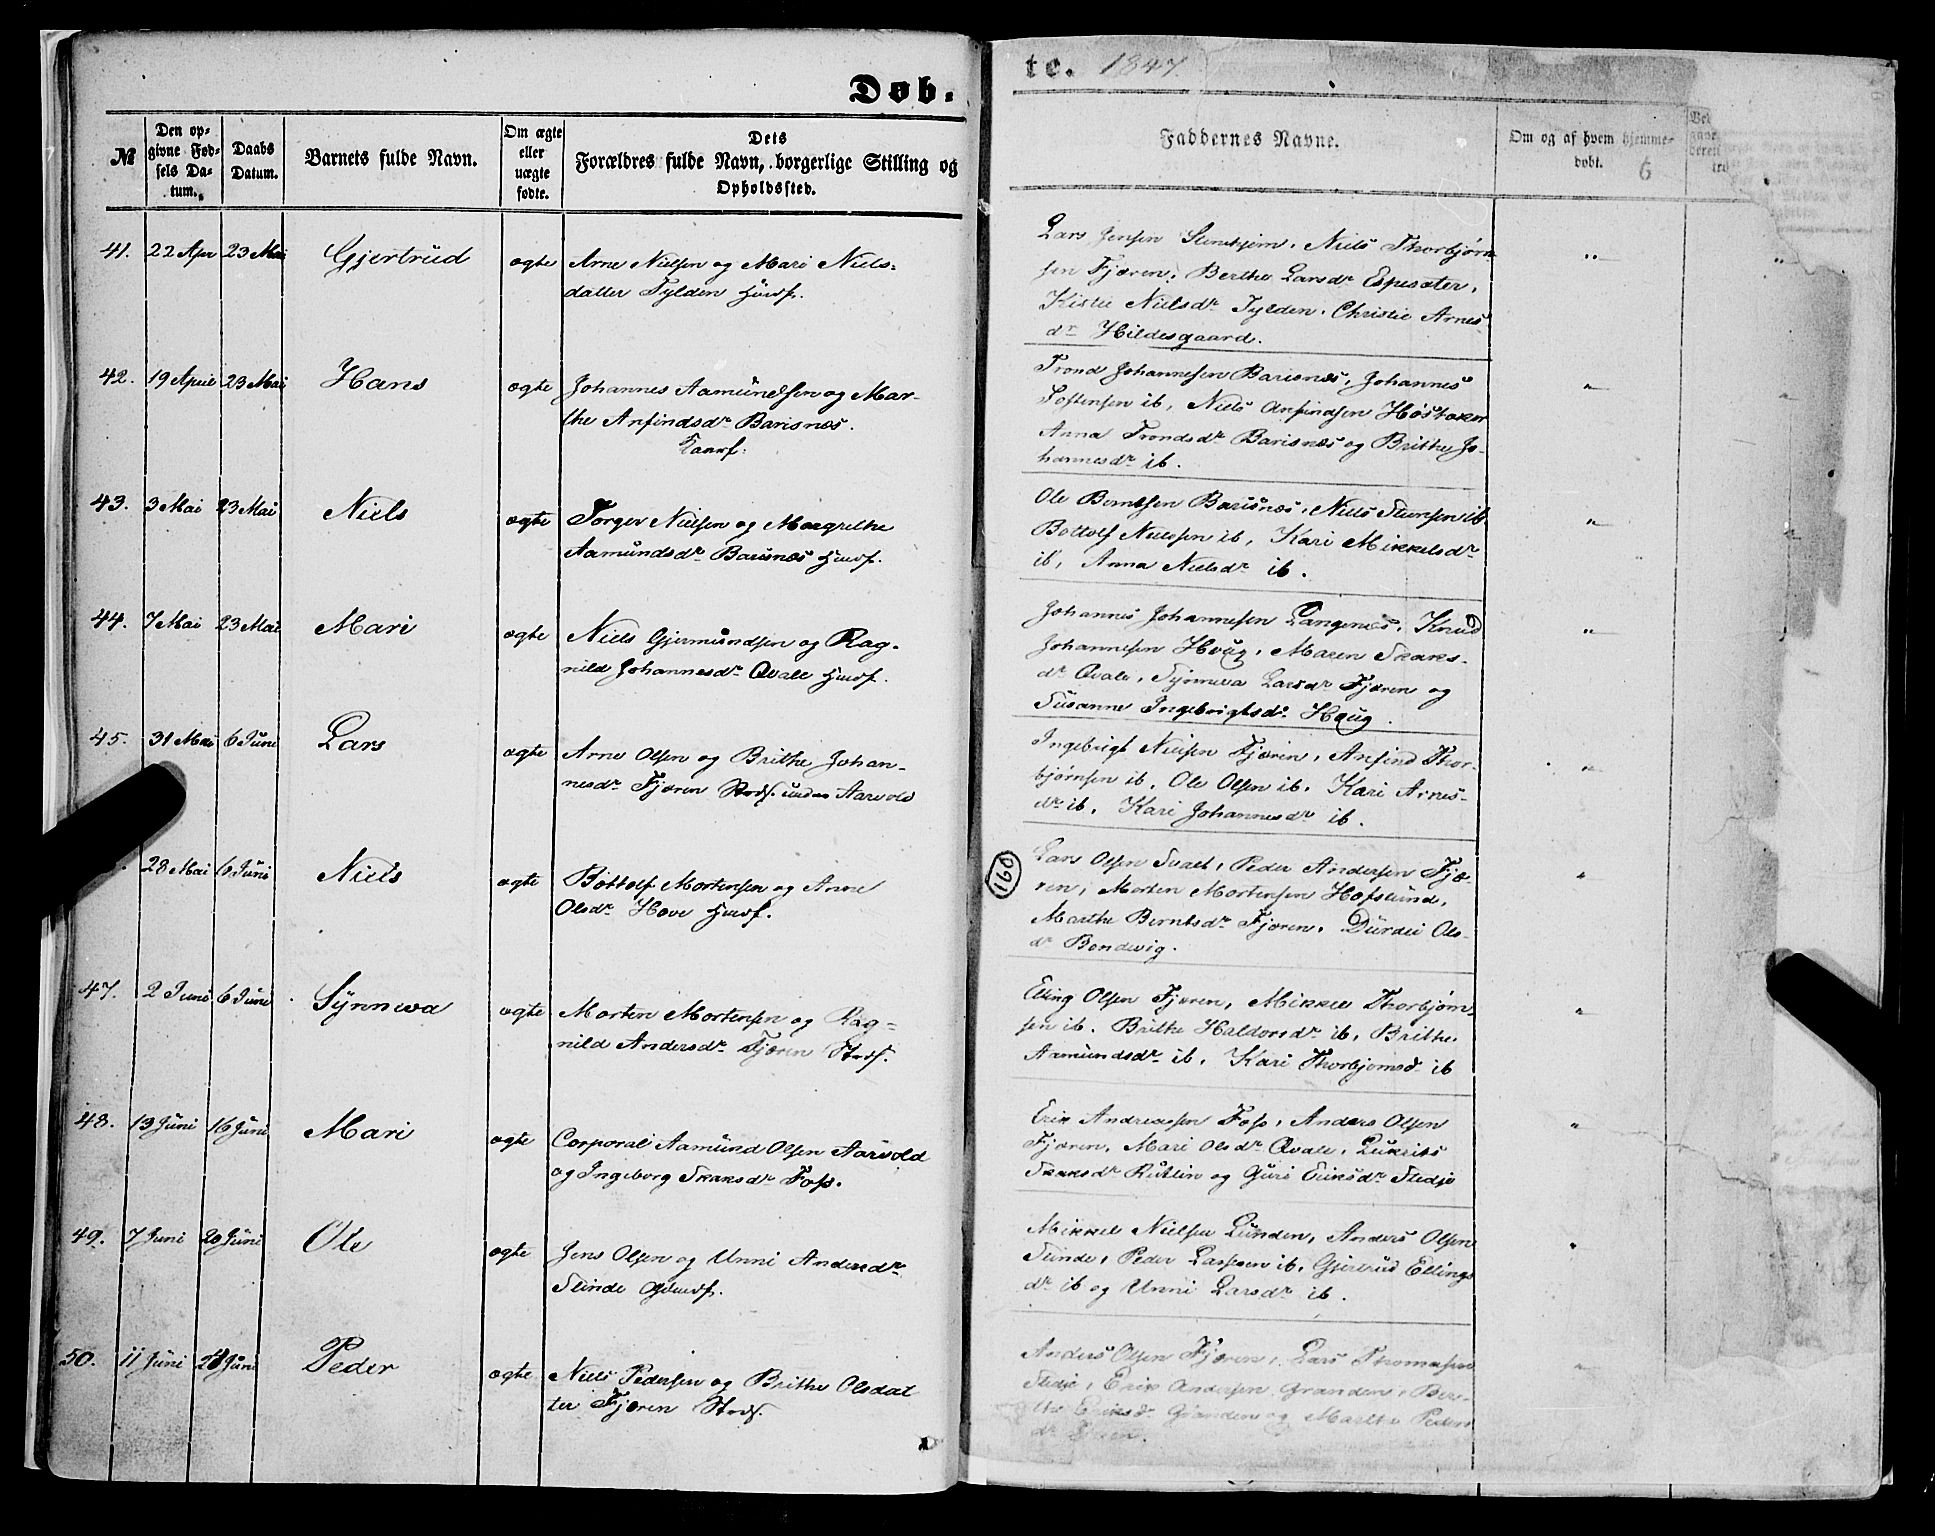 Døb-
№
Den op-
givne Fød-
sels Da-
tum.
Daabs
Datum.
Barnets fulde Navn.
Om ægte
eller
uægte
fødte.
Dets
Forældres fulde Navn, borgerlige Stilling og
Opholdssted.
41. 22 Apr 23 Mai Gjertrüd ægte Arne Nielsen og Mari Niels-
datter Tylden Huusf.
42. 19 April 23 Mai Hans ægte Johannes Aamündsen og Mar-
the Anfindsdr Barisnæs.
Kaarf.
43. 3 Mai 23 Mai Niels ægte Torger Nielsen og Margrethe
Aamündsdr Barisnæs Huusf.
44. 7 Mai 23 Mai Mari ægte Niels Gjermündsen og Rag-
nild Johannesdr Qvale Huusf.
45. 31 Mai 6 Juni Lars ægte Arne Olsen og Brithe Johan-
nesdr Fjæren Strdf. under Aarvold
28 Mai 6 Juni Niels ægte Bottolf Mortensen og Anne
Olsdr Hove Huusf.
47. 2 Juni 6 Juni Synneva ægte Morten Mortensen og Rag-
nild Andersdr Fjæren Strdf.
48. 13 Juni 16 Juni Mari ægte Corporal Aamünd Olsen Aarvold
og Ingeborg Skaksdr Foss.
49. 7 Juni 20 Juni Ole ægte Jens Olsen og Unni Andersdr
Slinde Huusf.
50. 11 Juni Juni Peder ægte Niels Pedersen og Brithe Olsdat
ter Fjæren Strdf.
te. 1847.
Faddernes Navne.
Om og af hvem hjemme-
døbt.
6
Lars Jensen Niels Thorbjørn
sen Fjæren, Berthe Larsdr Espesæter,
Kistie Nielsdr Tylden, Christie Arnes
dr Hildesgaard.
Trond Johannesen Barisnæs, Johannes
Tostensen ib, Niels Anfindsen Høstaker
Anna Trondsdr Barisnæs og Brithe Jo-
hannesdr ib.
Ole Berntsen Barisnæs, Niels ib
Bottolf Nielssen ib, Kari Mikkelsdr
ib, Anna Nielsdr ib.
Johannes Johannesen Langenæs, Knud
Johannesen Houg, Maren Skaks-
dr Qvale, Synneva Larsdr Fjæren og
Susanne Ingebrigtsdr Haug.
Ingebrigt Nielsen Fjæren, Anfind Thor-
bjørnsen ib, Ole Olsen ib, Kari Arnes-
dr ib, Kari Johannesdr ib.
160
Lars Olsen Peder Andersen Fjæ-
ren, Morten Mortensen Hofslund,
Marthe Berntsdr Fjæren, Dürdei Ols-
dr Bondevig.
Elling Olsen Fjæren, Mikkel Thorbjørn-
sen ib. Brithe Haldorsdr ib, Brithe
Aamundsdr ib, Kari Thorbjornsd ib
Erik Andreassen Foss, Anders Olsen
Fjæren, Mari Olsdr Qvale,
Skaksdr Rutlin og Guri Eriksdr Stedje
Mikkel Nielsen Lunden, Anders Olsen
Slinde, Peder Larssen ib, Gjertrud Ellings
dr ib og Unni Larsdr ib.
Anders Olsen Fjæren, Lars Thomassen
Stedje, Erik Andersen Granden, Bri-
the Eriksdr Granden og Marthe Peders
dr